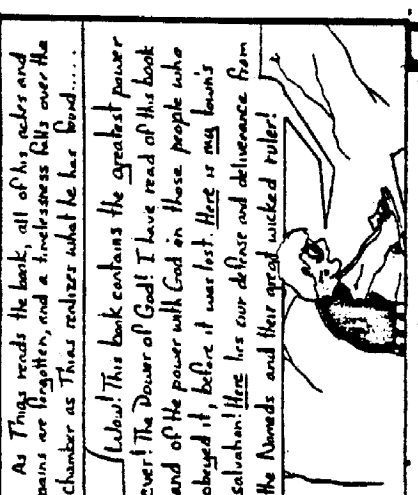 As Thias reads the book, all of his aches and
pains are forgotten, and a timelessness falls over the
chamber as Thias realizes what he has found.....
Wow! This book contains the greatest power
ever! The Power of God! I have read of this book
and of the power with God on those people who
obeyed it, before it was lost. Here is my town's
salvation! Here lies our defense and deliverance from
the Nameds and their great wicked ruler!